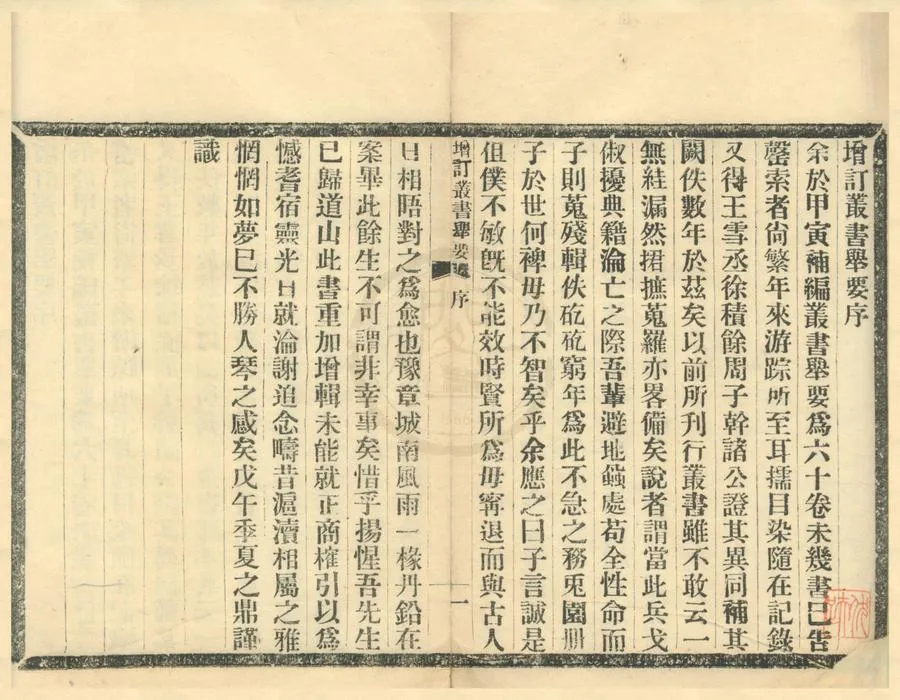 增訂叢書舉要序
余於甲寅補編叢書舉要爲六十卷未幾書已告
罄索者尙繁年來游踪所至耳擩目染隨在記錄
又得王雪丞徐積餘周子幹諸公證其異同補其
闕佚數年於茲矣以前所刊行叢書雖不敢云一
無絓漏然捃摭蒐羅亦畧備矣說者謂當此兵戈
俶擾典籍淪亡之際吾輩避地蟄處苟全性命而
子則蒐殘輯佚矻矻窮年爲此不急之務兎園册
子於世何裨毋乃不智矣乎余應之曰子言誠是
但僕不敏旣不能效時賢所爲毋寧退而與古人
增訂叢書舉要 序 一
日相晤對之爲愈也豫章城南風雨一椽丹鉛在
案畢此餘生不可謂非幸事矣惜乎揚惺吾先生
已歸道山此書重加增輯未能就正商榷引以爲
憾耆宿靈光日就淪謝追念疇昔滬瀆相屬之雅
惘惘如夢已不勝人琴之感矣戊午季夏之鼎謹
識